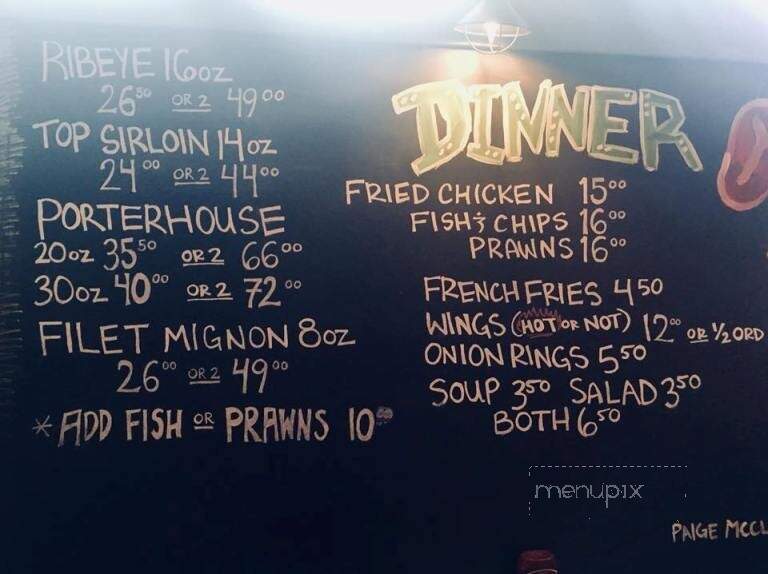 RIBEYE 16oz
26⁵⁰ OR 2 49⁰⁰
TOP SIRLOIN 14oz
24⁰⁰ OR 2 44⁰⁰
PORTERHOUSE
20oz 35⁵⁰ OR 2 66⁰⁰
30oz 40⁰⁰ OR 2 72⁰⁰
FILET MIGNON 8oz
26⁰⁰ OR 2 49⁰⁰
*ADD FISH OR PRAWNS 10⁰⁰
DINNER
FRIED CHICKEN 15⁰⁰
FISH & CHIPS 16⁰⁰
PRAWNS 16⁰⁰
FRENCH FRIES 4⁵⁰
WINGS (HOT OR NOT) 12⁰⁰ OR ½ ORD
ONION RINGS 5⁵⁰
SOUP 3⁵⁰ SALAD 3⁵⁰
BOTH 6⁵⁰
menupix
PAIGE MCCL